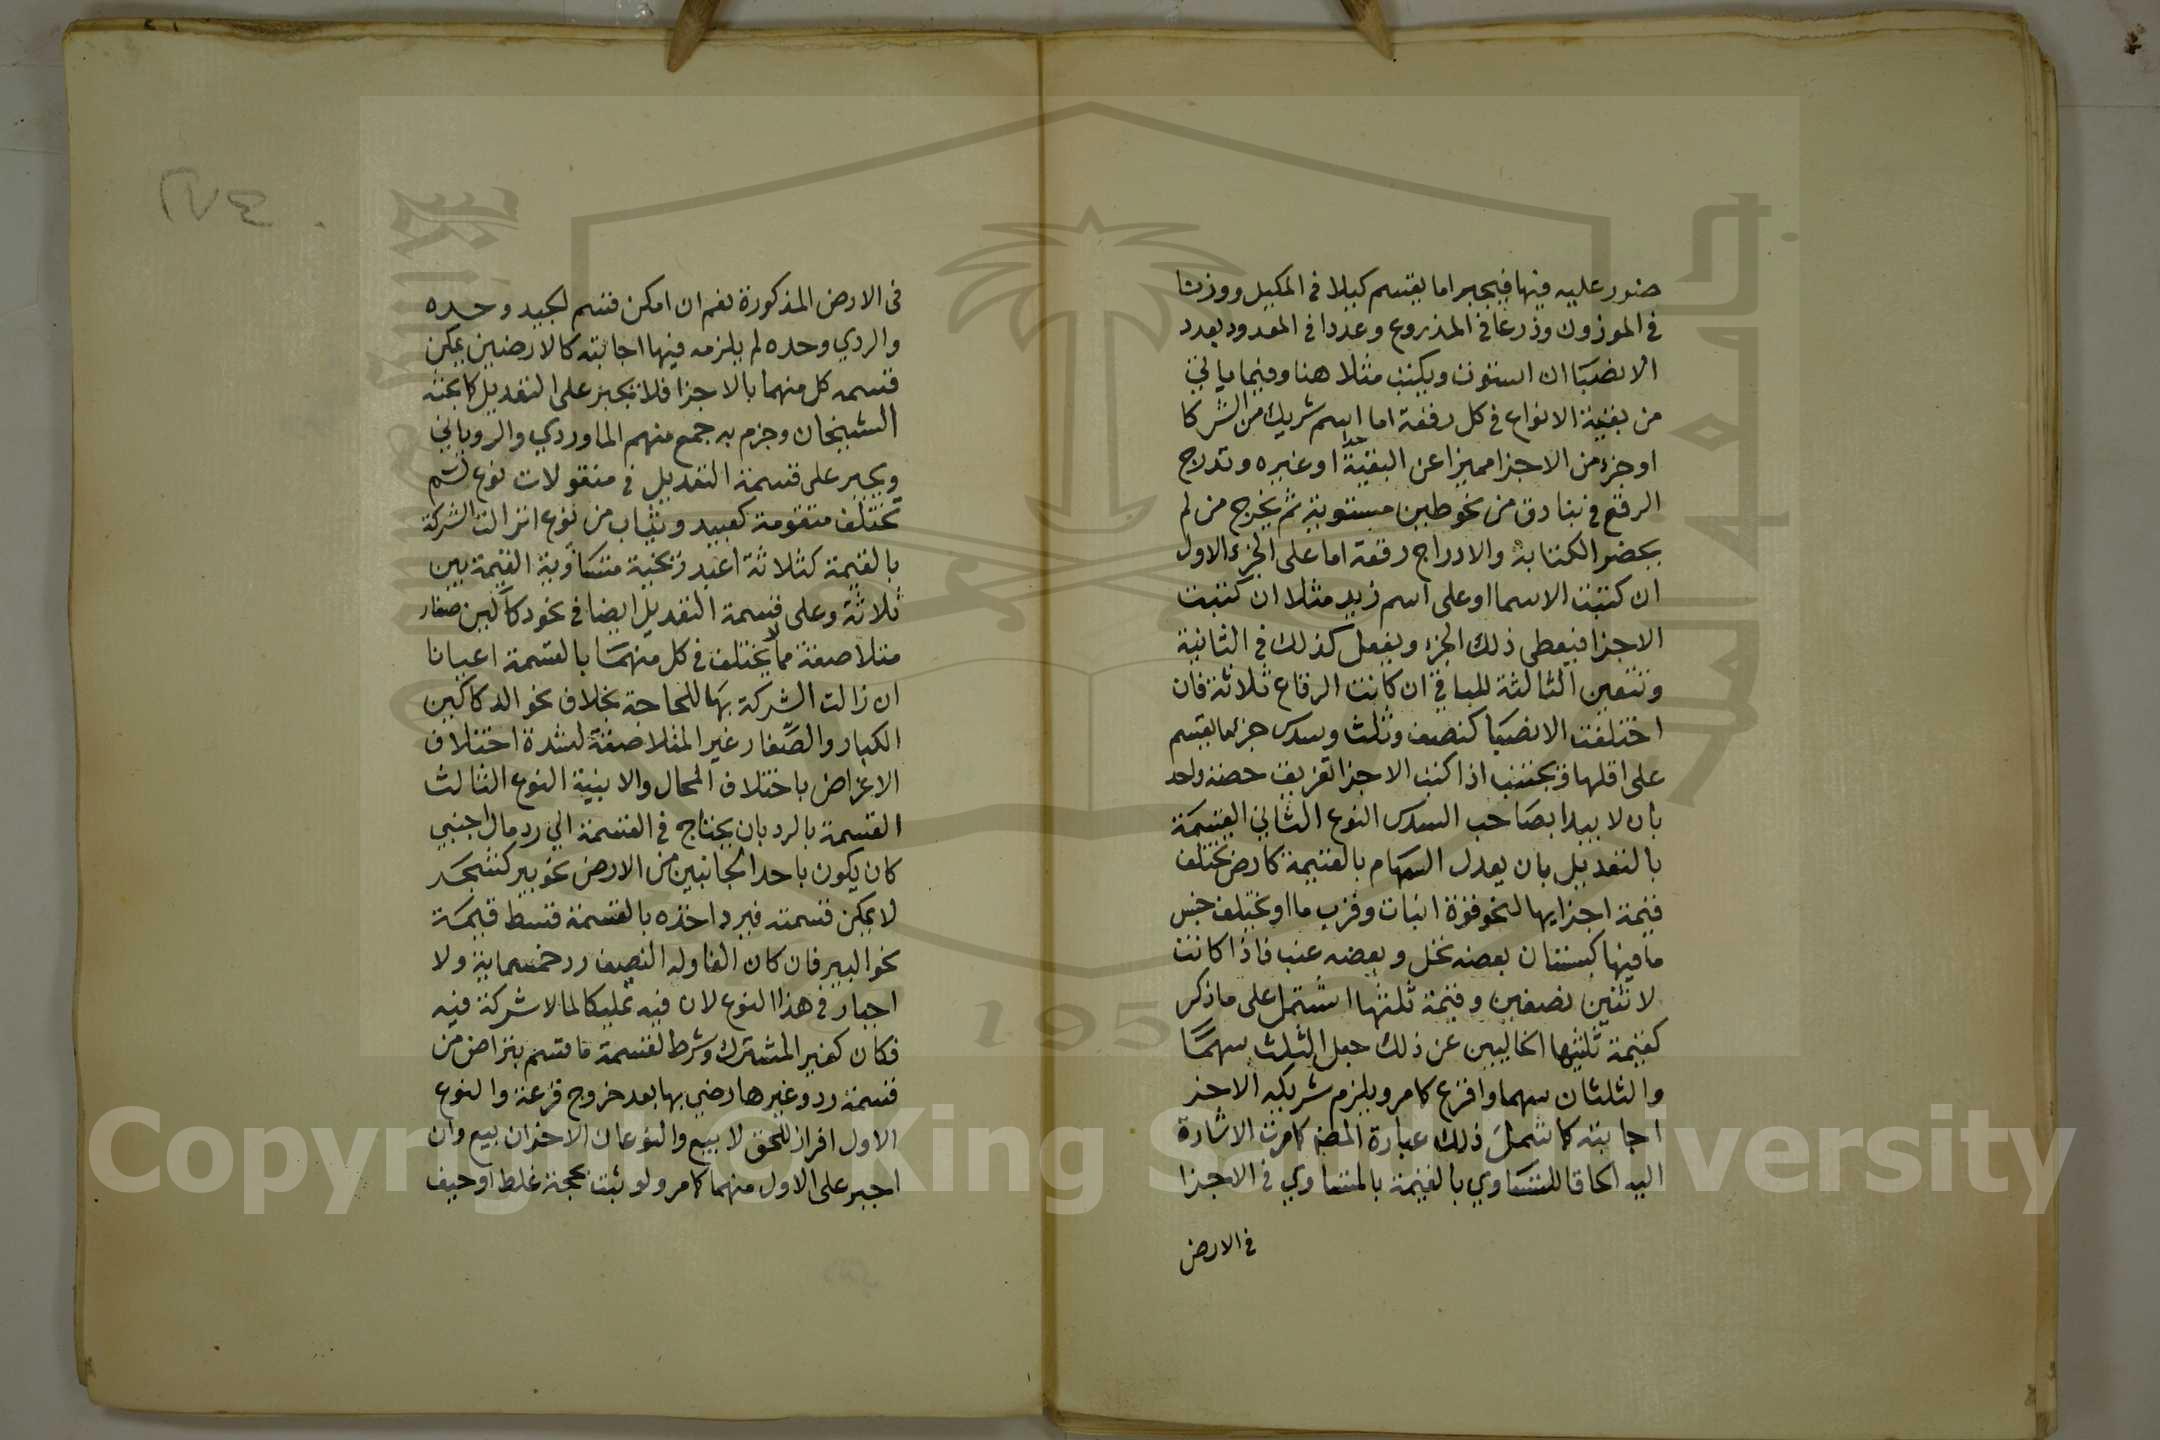 ضرر عليه فيها فيجبر اما يقسم كيلا في المكيل ووزنا
في الموزون وذرعا في المذروع وعددا في المعدود بعدد
الانصبا ان استوت ويكتب مثلا هنا وفيما ياتي
من بقية الانواع في كل رقعة اما اسم شريك من الشركا
او جزء من الاجزا مميزا عن البقية بحد او غيره وتدرج
الرقع في بنادق من نحو طين مستوية ثم يخرج من لم
يحضر الكتابة والادراج رقعة اما على الجزء الاول
ان كتبت الاسما او على اسم زيد مثلا ان كتبت
الاجزا فيعطى ذلك الجزء ويفعل كذلك في الثانية
وتتعين الثالثة للباقي ان كانت الرقاع ثلاثة فان
اختلفت الانصبا كنصف وثلث وسدس جزئ ما يقسم
على اقلها ويجتنب اذا كتب الاجزا تفريق حصة واحد
بان لا يبدا بصاحب السدس النوع الثاني القسمة
بالتعديل بان يعدل السهام بالقيمة كارض تختلف
قيمة اجزايها لنحو قوة انبات وقرب ما او يختلف جنس
ما فيها كبستان بعضه نخل وبعضه عنب فاذا كانت
لاثنين نصفين وقيمة ثلثها اشتمل على ما ذكر
كقيمة ثلثيها الخاليين عن ذلك جعل الثلث سهما
والثلثان سهما واقرع كما مر ويلزم شريكه الاخر
اجابته كما شمل ذلك عبارة المص كما مرت الاشارة
اليه الحاقا للتساوي بالقيمة بالتساوي في الاجزا
في الارض
٢٧٤
في الارض المذكورة نعم ان امكن قسم الجيد وحده
والردي وحده لم يلزمه فيها اجابته كالارضين يمكن
قسمة كل منهما بالاجزا فلا يجبر على التعديل كما بحثه
الشيخان وجزم به جمع منهم الماوردي والروياني
ويجبر على قسمة التعديل في منقولات نوع لم
تختلف متقومة كعبيد وثياب من نوع ان زالت الشركة
بالقيمة كثلاثة اعبد زنجية متساوية القيمة بين
ثلاثة وعلى قسمة التعديل ايضا في نحو دكاكين صغار
متلاصقة مما لا يختلف في كل منهما بالقسمة اعيانا
ان زالت الشركة بها للحاجة بخلاف نحو الدكاكين
الكبار والصغار غير المتلاصقة لشدة اختلاف
الاغراض باختلاف المحال والابنية النوع الثالث
القسمة بالرد بان يحتاج في القسمة الي رد مال اجنبي
كان يكون باحد الجانبين من الارض نحو بير كشجر
لا يمكن قسمته فيرد اخذه بالقسمة قسط قيمة
نحو البير فان كان الفا وله النصف رد خمسماية ولا
اجبار في هذا النوع لان فيه تمليكا لما لا شركة فيه
فكان كغير المشترك وشرط لقسمة ما قسم بتراض من
قسمة رد وغيرها رضي بها بعد خروج قرعة والنوع
الاول افراز للحق لا بيع والنوعان الاخران بيع وان
اجبر على الاول منهما كما مر ولو ثبت بحجة غلط او حيف